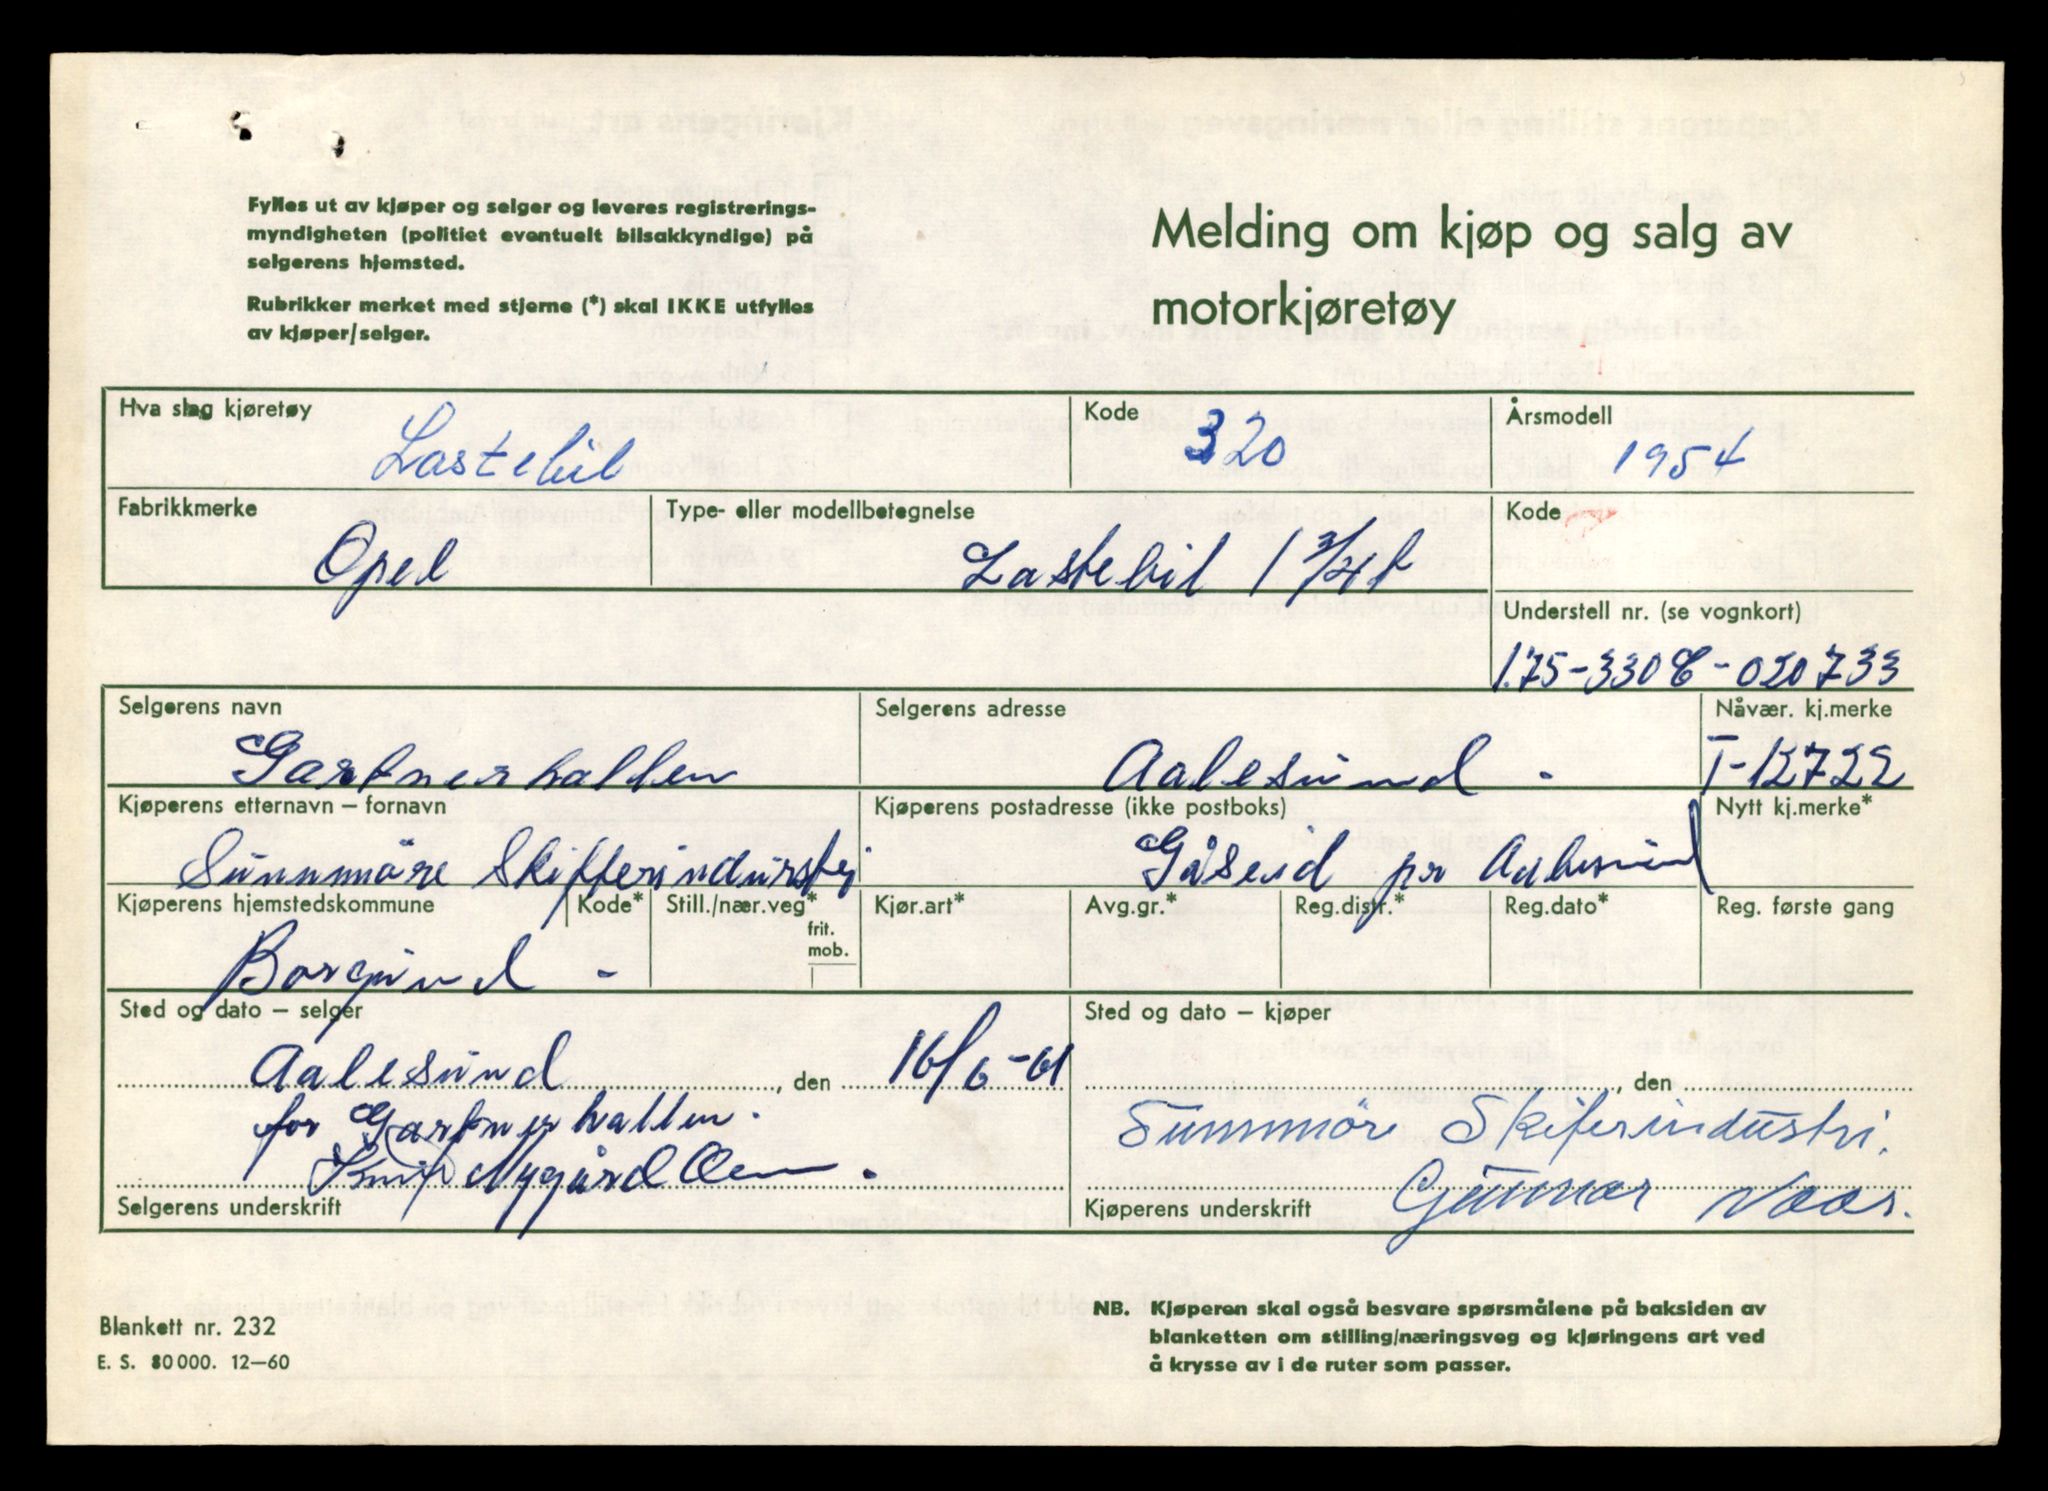 Fylles ut av kjøper og selger og leveres registrerings-
myndigheten (politiet eventuelt bilsakkyndige) på
selgerens hjemsted.
Rubrikker merket med stjerne (*) skal IKKE utfylles
av kjøper/selger.
Melding om kjøp og salg av
motorkjøretøy
Hva slag kjøretøy Kode Årsmodell
Lastebil 320 1954
Fabrikkmerke Type- eller modellbetegnelse Kode
Opel Lastebil 1 3/4 t
Understell nr. (se vognkort)
1.75-330 - 020733
Selgerens navn Selgerens adresse Nåvær. kj.merke
Gartnerhallen Aalesund - T-12722
Kjøperens etternavn – fornavn Kjøperens postadresse (ikke postboks) Nytt kj.merke*
Sunnmöre Skifferindurstri Gåseid pr Aalesund
Kjøperens hjemstedskommune Kode* Still./nær.veg* Kjør.art* Avg.gr.* Reg.distr.* Reg.dato* Reg. første gang
frit.
mob.
Borgund -
Sted og dato – selger Sted og dato – kjøper
Aalesund, den 16/6-61 , den
for Gartnerhallen.
Sunnmöre Skiferindustri.
Knut Nygård
Gunnar
Selgerens underskrift Kjøperens underskrift
NB. Kjøperen skal også besvare spørsmålene på baksiden av
blanketten om stilling/næringsveg og kjøringens art ved
å krysse av i de ruter som passer.
Blankett nr. 232
E. S. 80000. 12—60